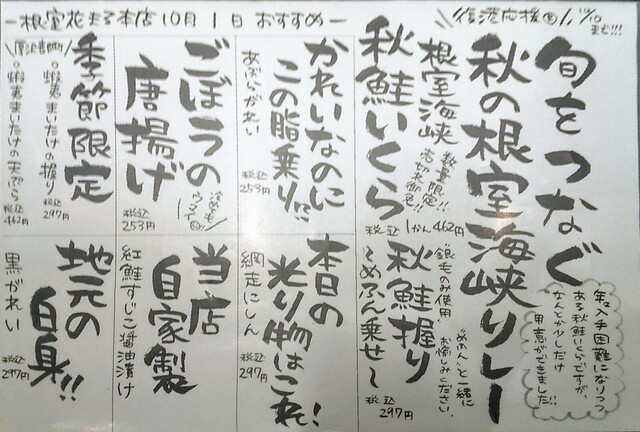 根室花まる本店10月1日おすすめ
復活応援
まで!!!
旬をつなぐ
秋の根室海峡リレー
年々入手困難になりつつ
ある秋鮭いくらですが、
なんとか少しだけ
用意ができました!!
根室海峡
秋鮭いくら
数量限定!!
売切れ御免!!
税込 1かん 462円
秋鮭握り
〜めふん乗せ〜
銀毛のみ使用
"めふん"と一緒に
お愉しみください。
税込 297円
かれいなのに
この脂乗り!!
あぶらがれい
税込 253円
本日の
光り物はこれ!
網走にしん
税込 297円
ごぼうの
唐揚げ
冷めても
ウマイ
税込 253円
当店
自家製
紅鮭すじこ醤油漬け
税込 297円
季節限定
蝦夷まいたけの握り
税込 297円
蝦夷まいたけの天ぷら
税込 462円
地元の
白身!!
黒がれい
税込 297円